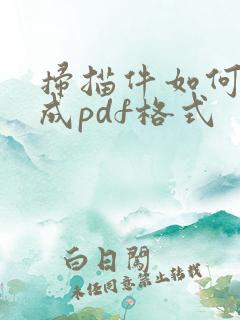 扫描件如何
成pdf格式
白日闻
未经同意禁止转载